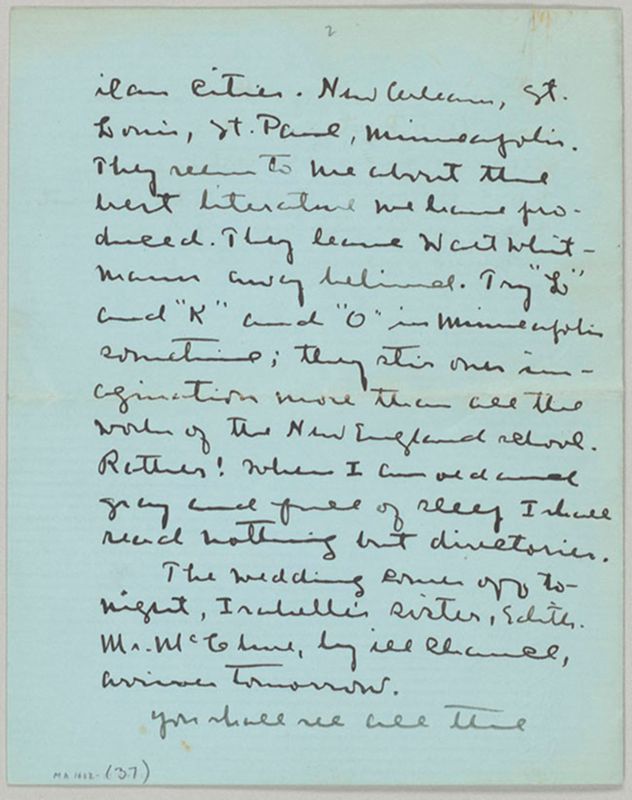 2
ilar cities. New Orleans, St.
Louis, St. Paul, Minneapolis.
They seem to me about the
best literature we have pro-
duced. They leave Walt Whit-
mann away behind. Try "L"
and "K" and "O" in Minneapolis
sometime; they stir ones im-
agination more than all the
works of the New England school.
Rather! When I am old and
gray and full of sleep I shall
read nothing but directories.
The wedding comes off to-
night, Isabelle's sister, Edith.
Mr. McClure, by ill chance,
arrives tomorrow.
You shall see all the
MA 1602-(37)